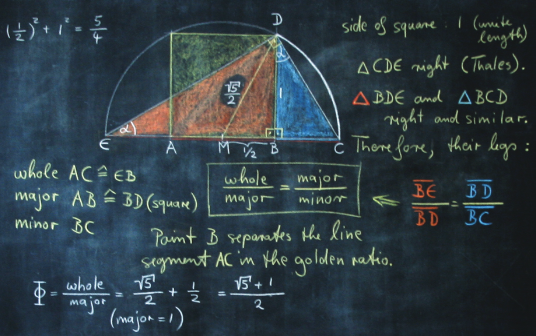 (1/2)² + 1² = 5/4
D
side of square : 1 (unite length)
△CDE right (Thales).
△BDE and △BCD
right and similar.
Therefore, their legs :
α
√5/2
1
α
E A M B C
1/2
whole AC ≙ EB
major AB ≙ BD (square)
minor BC
whole/major = major/minor
⇐ BE/BD = BD/BC
Point B separates the line
segment AC in the golden ratio.
Φ = whole/major = √5/2 + 1/2 = (√5 + 1)/2
(major = 1)